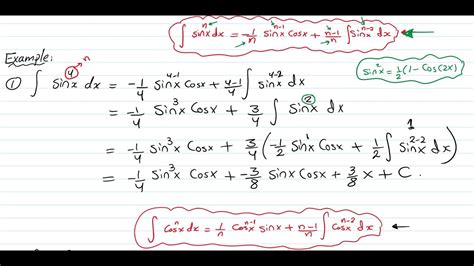 ∫ sinⁿx dx = -1/n sinⁿ⁻¹x cosx + n-1/n ∫ sinⁿ⁻²x dx
Example:
sin²x = 1/2 (1 - Cos(2x))
① ∫ sin⁴x dx = -1/4 sin⁴⁻¹x Cosx + 4-1/4 ∫ sin⁴⁻²x dx
n
= -1/4 sin³x Cosx + 3/4 ∫ sin²x dx
= -1/4 sin³x Cosx + 3/4 (-1/2 sin¹x Cosx + 1/2 ∫ sin²⁻²x dx)
1
= -1/4 sin³x Cosx + -3/8 sinx Cosx + 3/8 x + C.
∫ Cosⁿx dx = 1/n Cosⁿ⁻¹x sinx + n-1/n ∫ Cosⁿ⁻²x dx